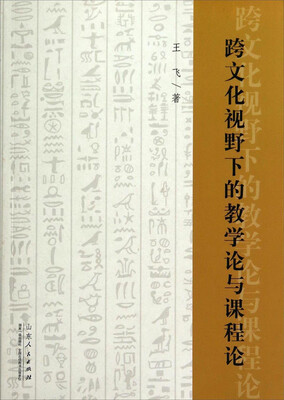 跨文化视野下的教学论与课程论
跨文化视野下的教学论与课程论
王飞/著
山东人民出版社